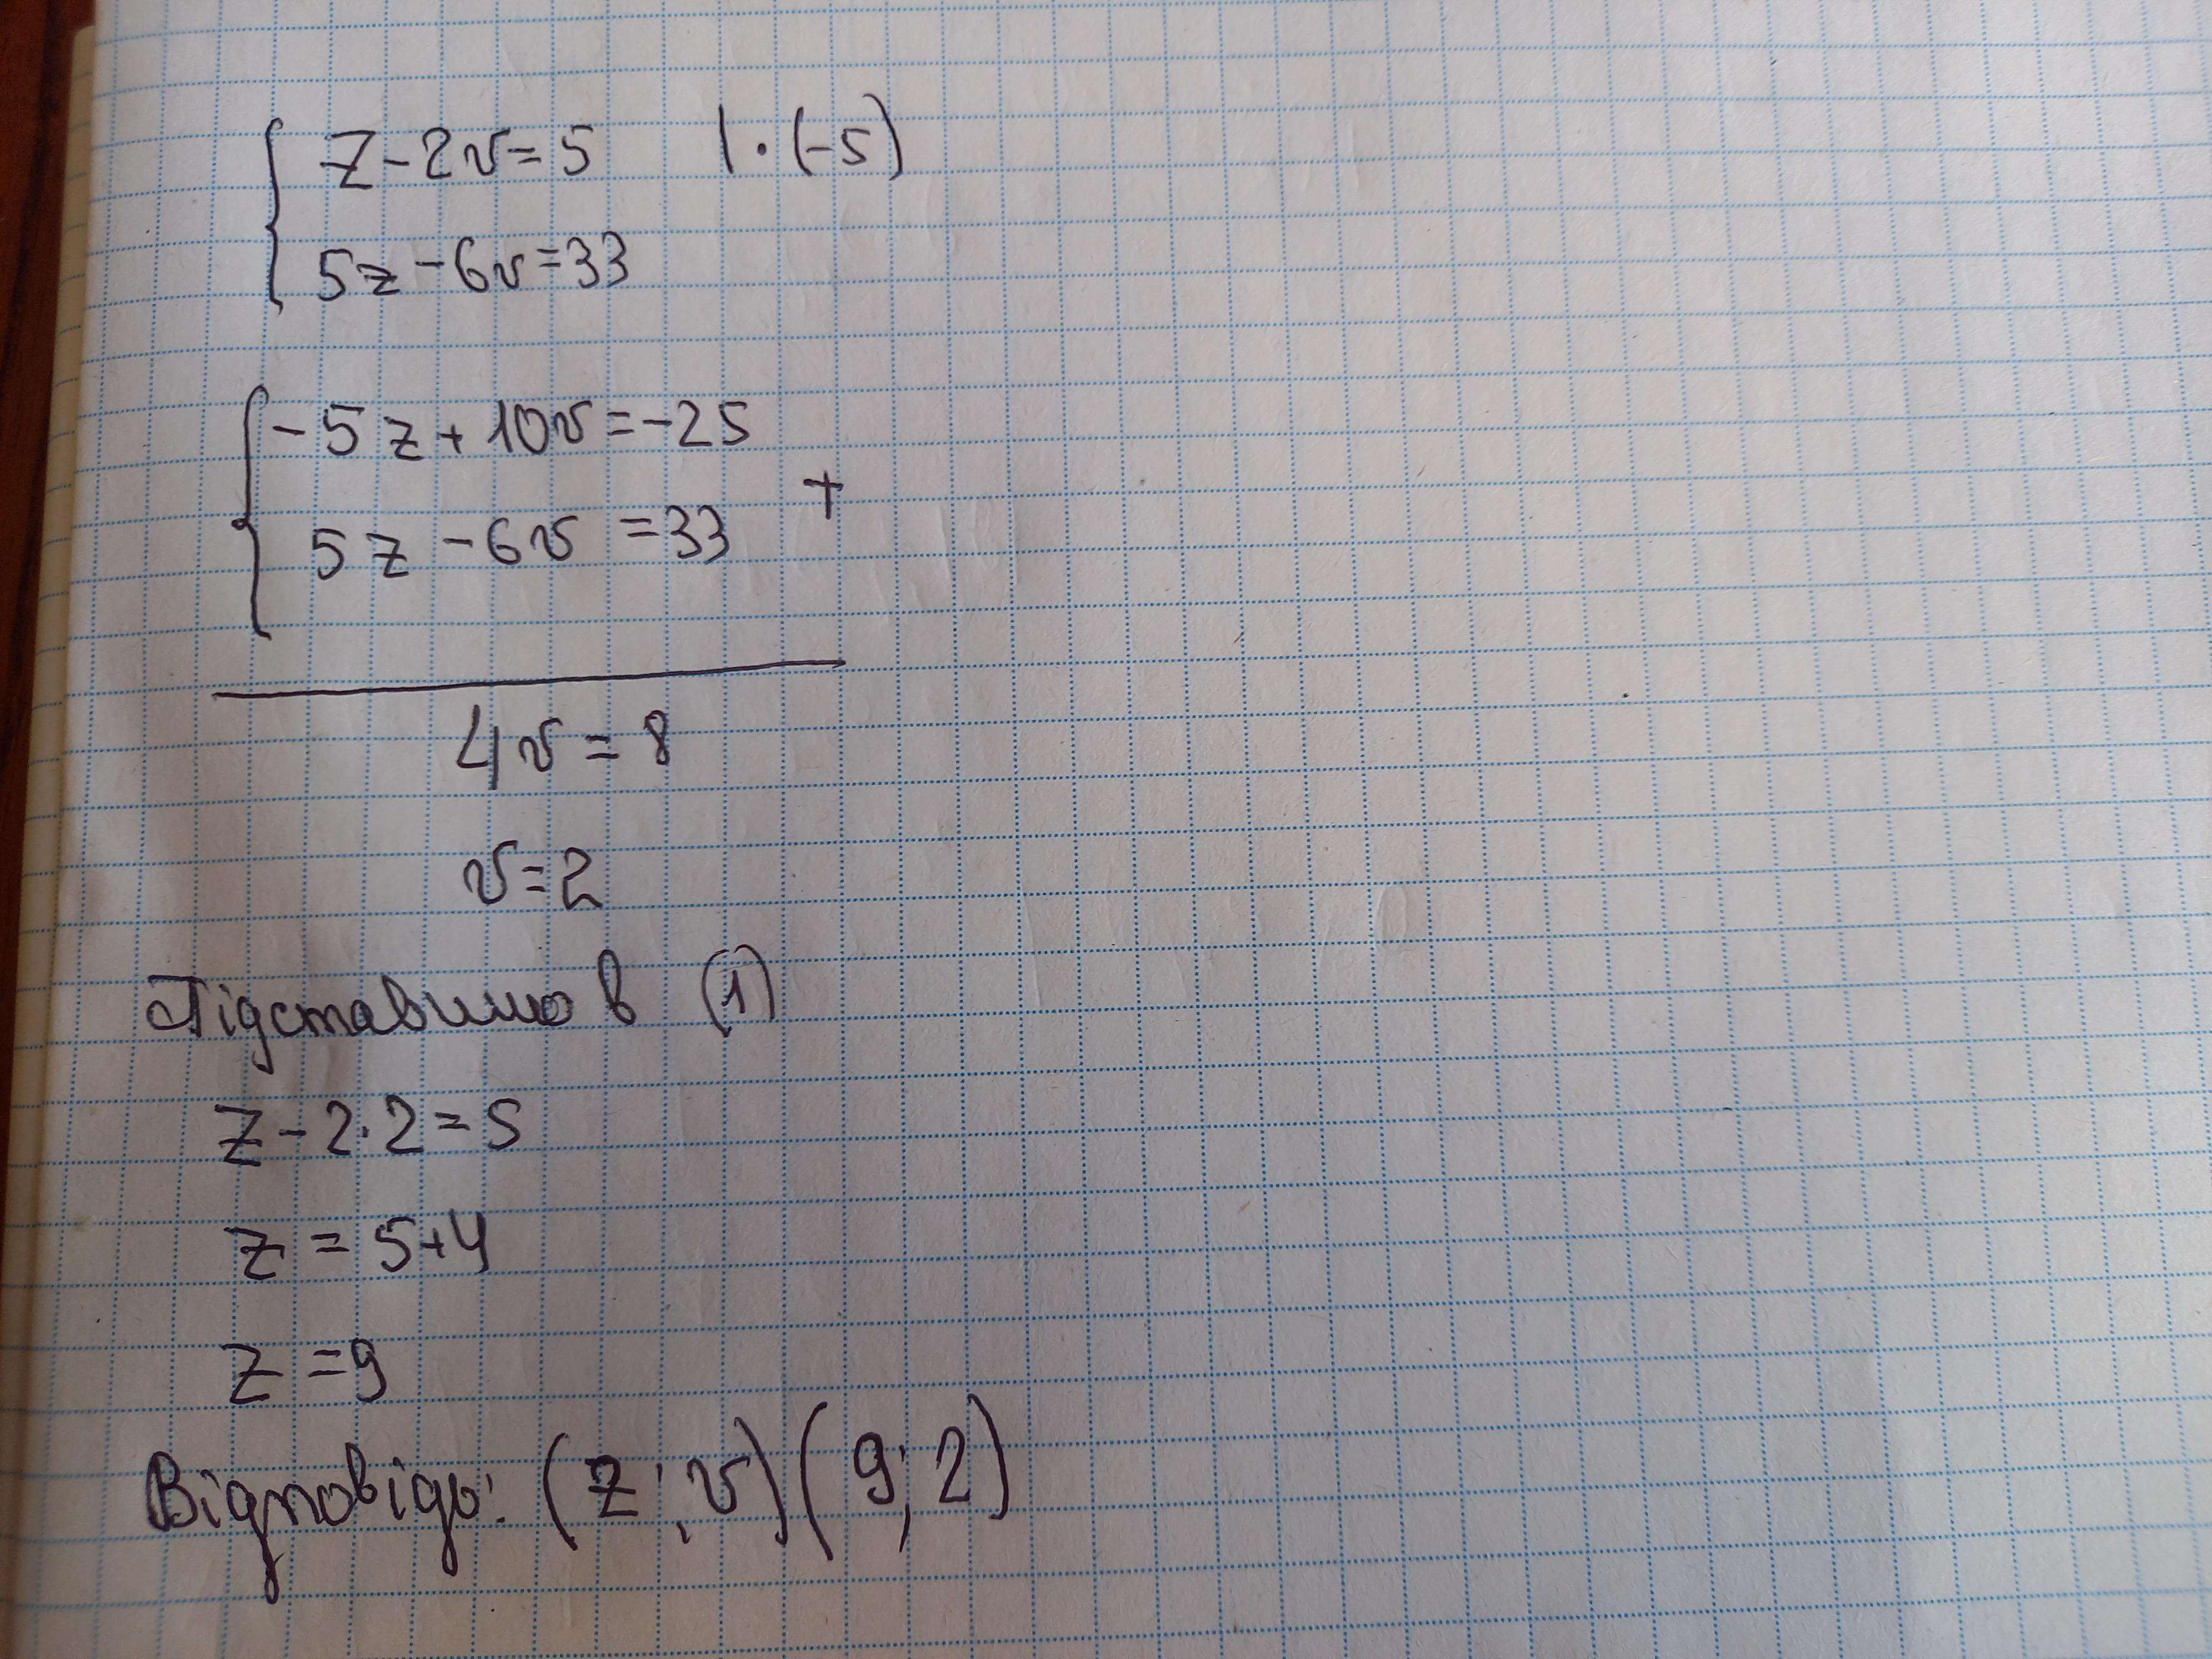 z - 2v = 5 | · (-5)
5z - 6v = 33
-5z + 10v = -25
+
5z - 6v = 33
4v = 8
v = 2
Підставимо в (1)
z - 2 · 2 = 5
z = 5 + 4
z = 9
Відповідь: (z; v) (9; 2)